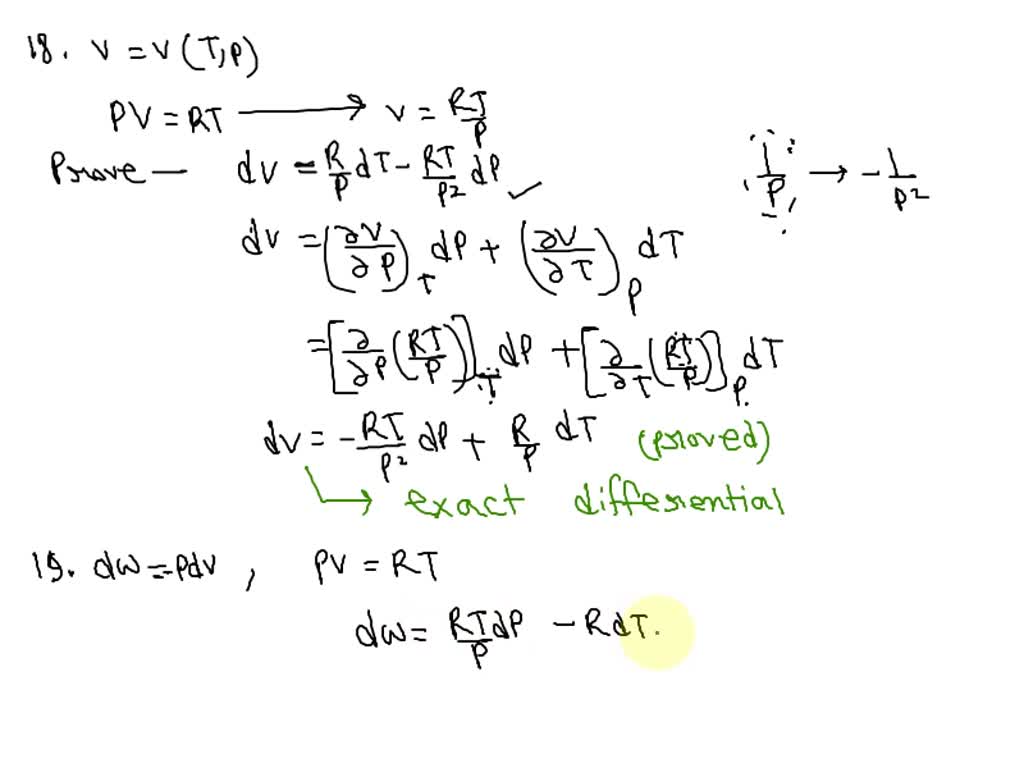 18. V = V(T,P)
PV = RT ⟶ V = RT/P
Prove — dV = R/P dT - RT/P² dP ✓
1/P → -1/P²
dV = (∂V/∂P)_T dP + (∂V/∂T)_P dT
= [∂/∂P (RT/P)]_T dP + [∂/∂T (RT/P)]_P dT
dV = -RT/P² dP + R/P dT (proved)
↳ exact differential
19. dw = -PdV , PV = RT
dw = RT/P dP - RdT.